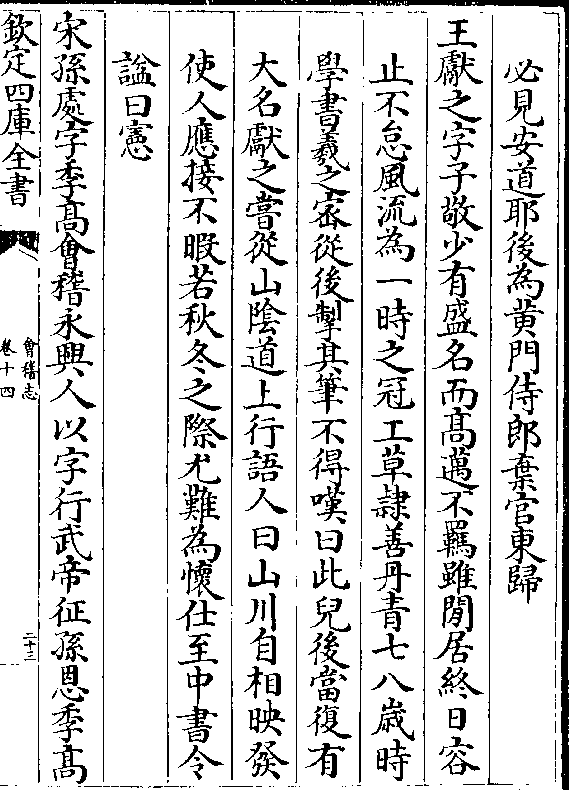 必見安道耶後為黄門侍郎棄官東歸
王獻之字子敬少有盛名而髙邁不羈雖閒居終日容
止不怠風流為一時之冠工草隷善丹青七八歳時
學書羲之宻從後掣其筆不得嘆曰此兒後當復有
大名獻之嘗從山陰道上行語人曰山川自相映發
使人應接不暇若秋冬之際尤難為懐仕至中書令
諡曰憲
宋孫處字季髙會稽永興人以字行武帝征孫恩季髙
欽定四庫全書
會稽志
卷十四
二十三